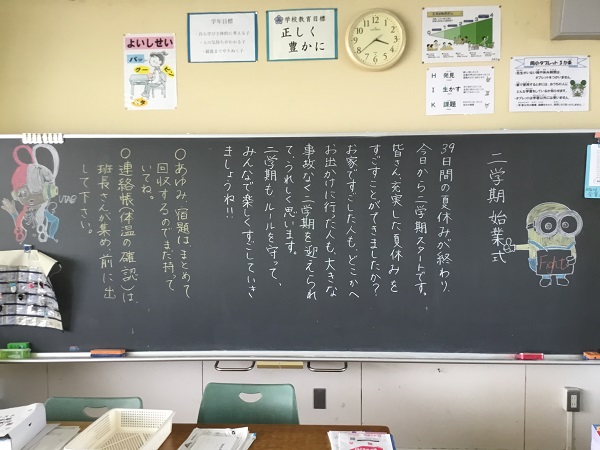 よいしせい
グー
学年目標
学校教育目標
正しく
豊かに
H 発見
I 生かす
K 課題
二学期 始業式
39日間の夏休みが終わり、
今日から二学期スタートです。
皆さん、充実した夏休みを
すごすことができましたか?
お家ですごした人も、どこかへ
お出かけに行った人も、大きな
事故なく二学期を迎えられ
て、うれしく思います。
二学期も、ルールを守って、
みんなで楽しくすごしていき
ましょうね!!
○あゆみ、宿題はまとめて
回収するのでまだ持って
いてね。
○連絡帳(体温の確認)は、
班長さんが集め、前に出
して下さい。